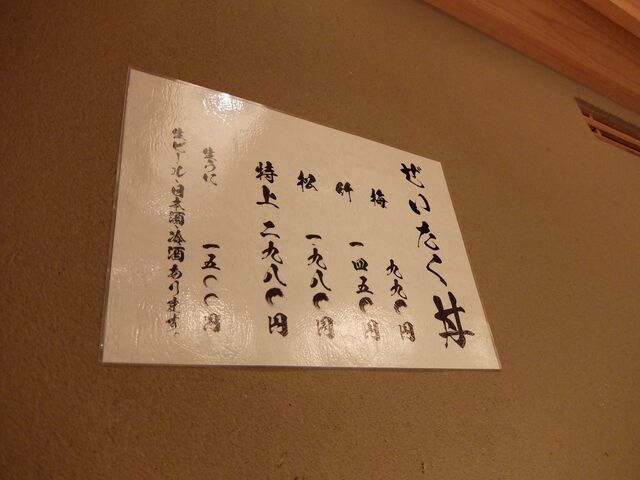 ぜいたく丼
梅 九九〇円
竹 一四五〇円
松 一九八〇円
特上 二九八〇円
生うに 一五〇〇円
生ビール・日本酒・冷酒あります。